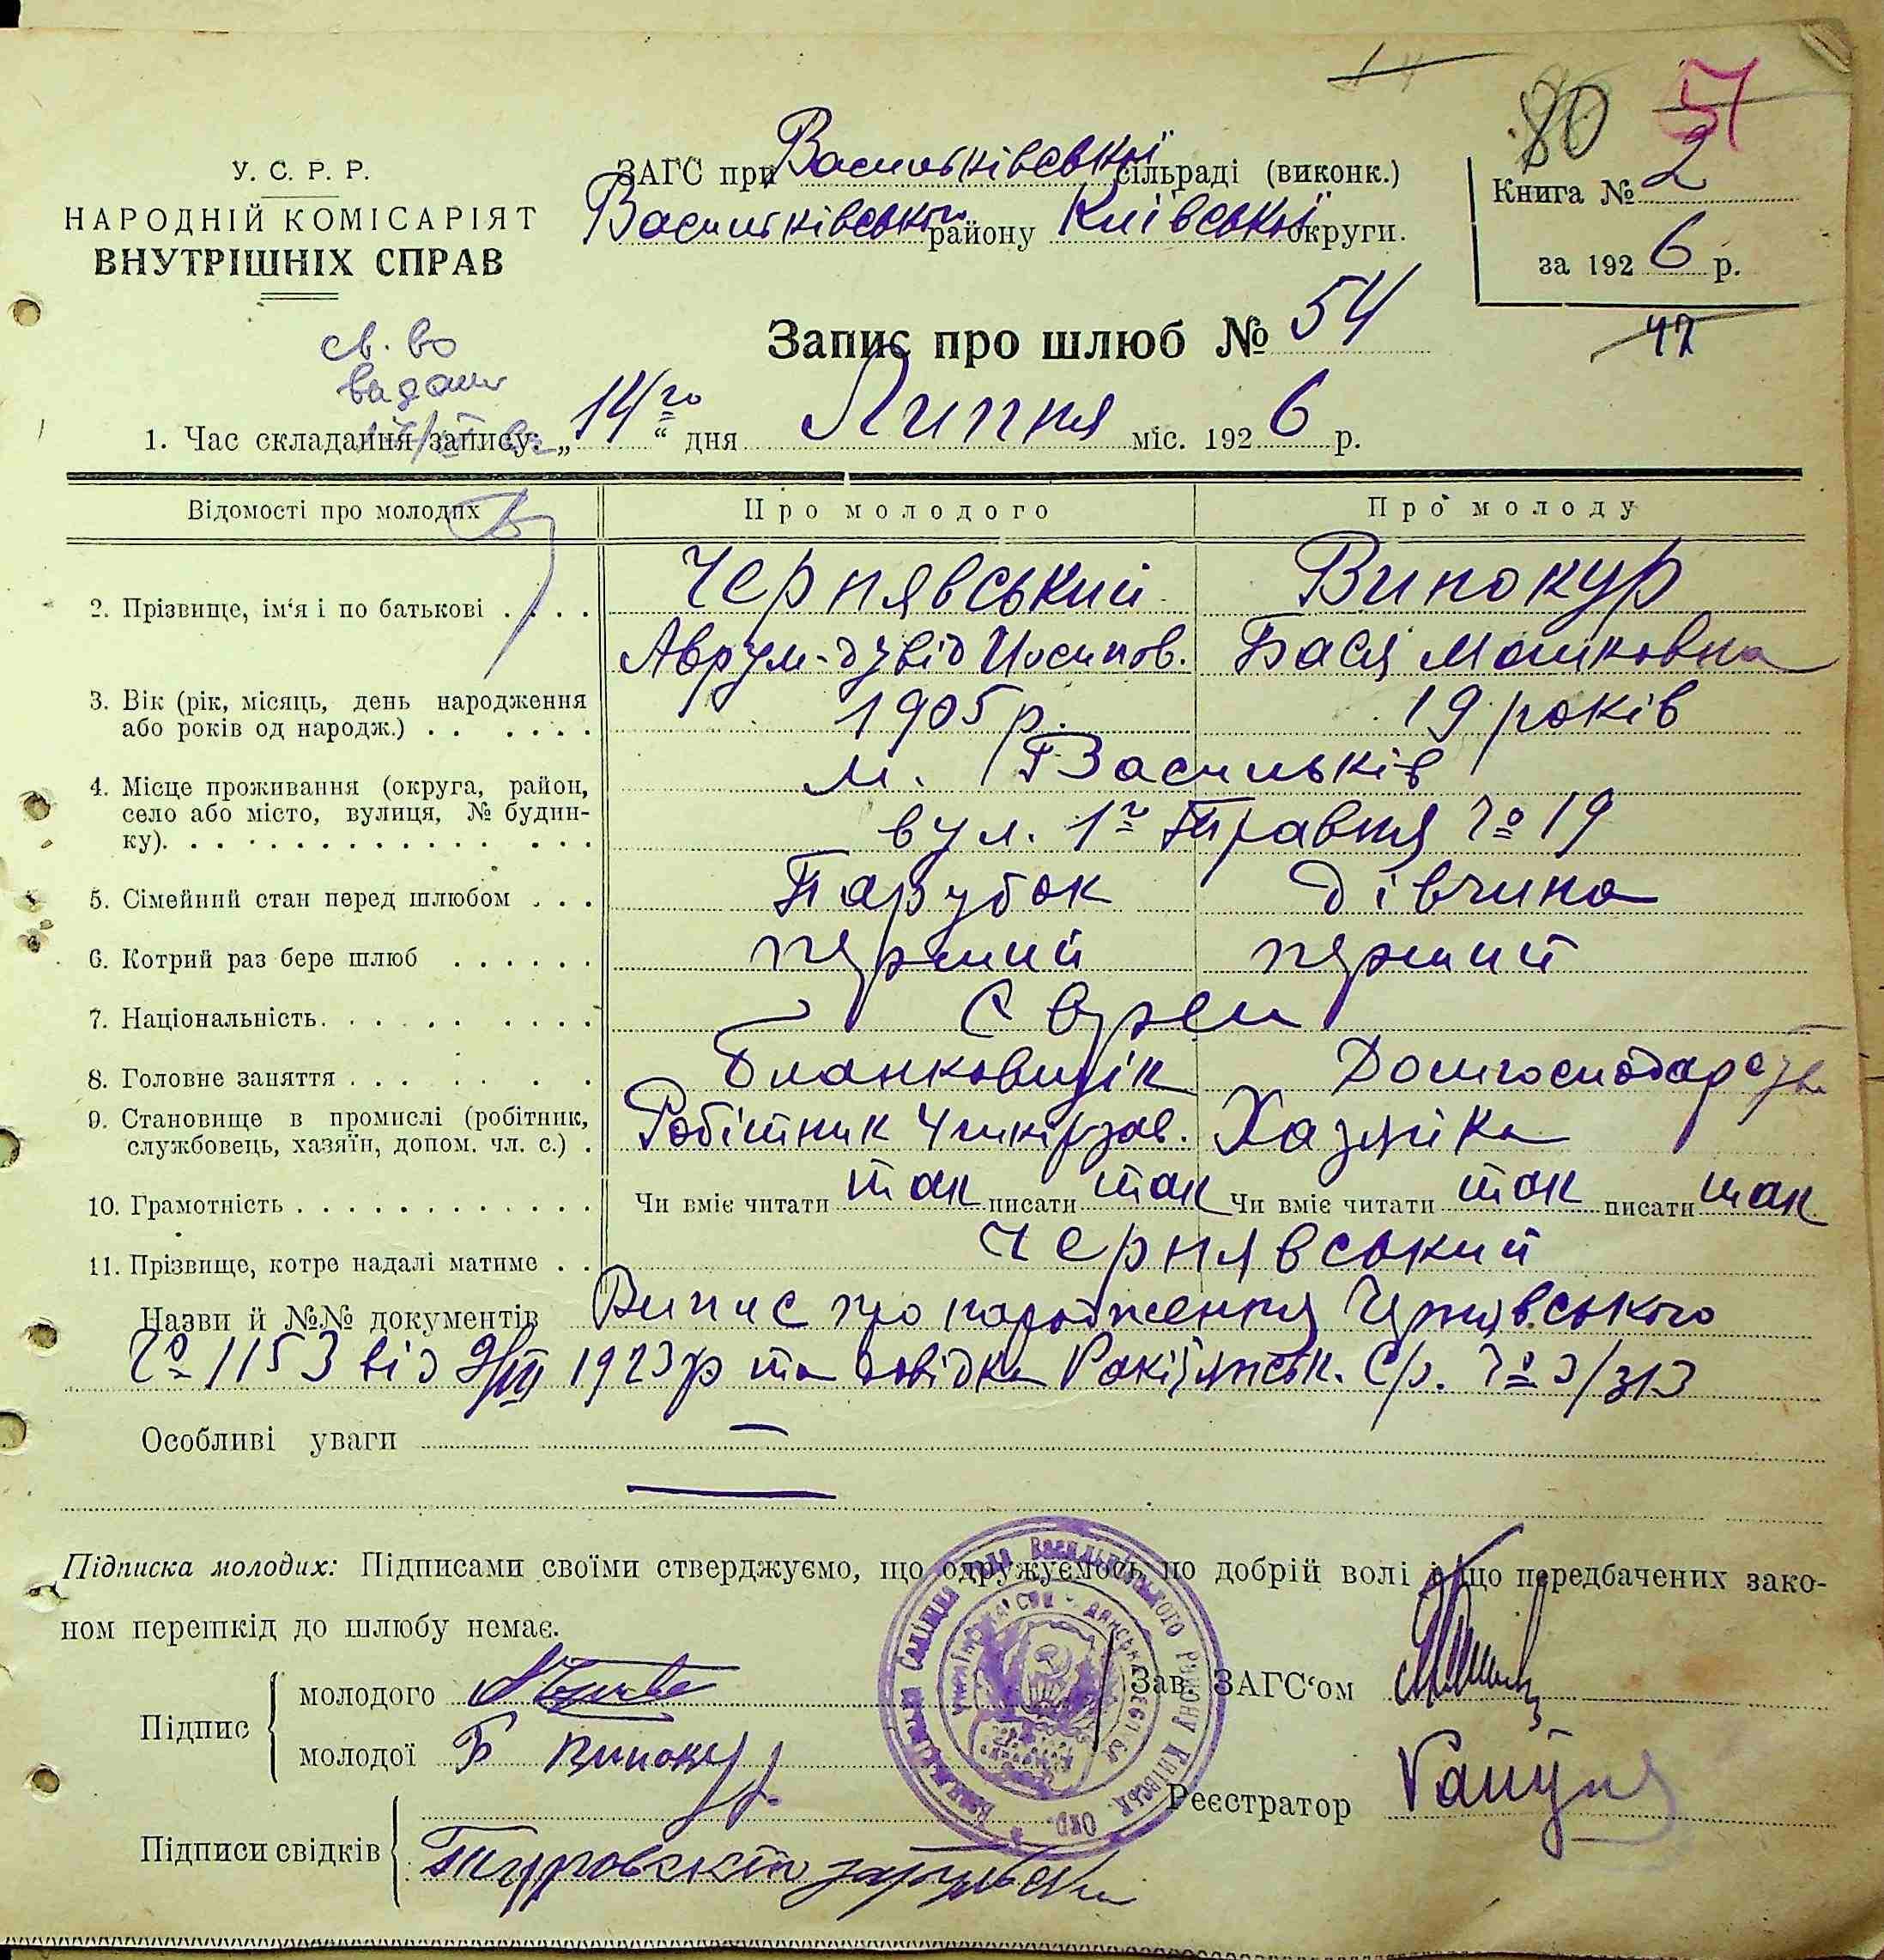 80 51
У. С. Р. Р.
НАРОДНІЙ КОМІСАРІЯТ
ВНУТРІШНІХ СПРАВ
ЗАГС при Васильківської сільраді (виконк.)
Васильківського району Київської округи.
Книга № 2
за 1926 р.
47
Запис про шлюб № 54
св. во
видано
1. Час складання запису: „14го“ дня Липня міс. 1926 р.
Відомості про молодих Про молодого Про молоду
2. Прізвище, ім‘я і по батькові . . . . Чернявський Винокур
Аврум-Дувід Иосипов. Бася Мошковна
3. Вік (рік, місяць, день народження
або років од народж.) . . . . . . 1905 р. 19 років
4. Місце проживання (округа, район,
село або місто, вулиця, № будин-
ку). м. Васильків
вул. 1го Травня № 19
5. Сімейний стан перед шлюбом . . . Парубок дівчина
6. Котрий раз бере шлюб . . . . . . перший перший
7. Національність. . . . . . . . . . Євреи
8. Головне заняття . . . . . . . Бланковщік Домгосподарств
9. Становище в промислі (робітник,
службовець, хазяїн, допом. чл. с.) . Робітник Хазяйка
10. Грамотність . . . . . . . . . . . . Чи вміє читати так писати так Чи вміє читати так писати так
11. Прізвище, котре надалі матиме . . Чернявський
Назви й №№ документів Випис про народження Чернявського
№ 1153 від 9/VII 1923 р та довідка Ракітянськ. С/р. № 3/313
Особливі уваги —
Підписка молодих: Підписами своїми стверджуємо, що одружуємось по добрій волі і що передбачених зако-
ном перешкід до шлюбу немає.
Підпис молодого
молодої Б Винокур
Зав. ЗАГС‘ом
Реєстратор
Підписи свідків